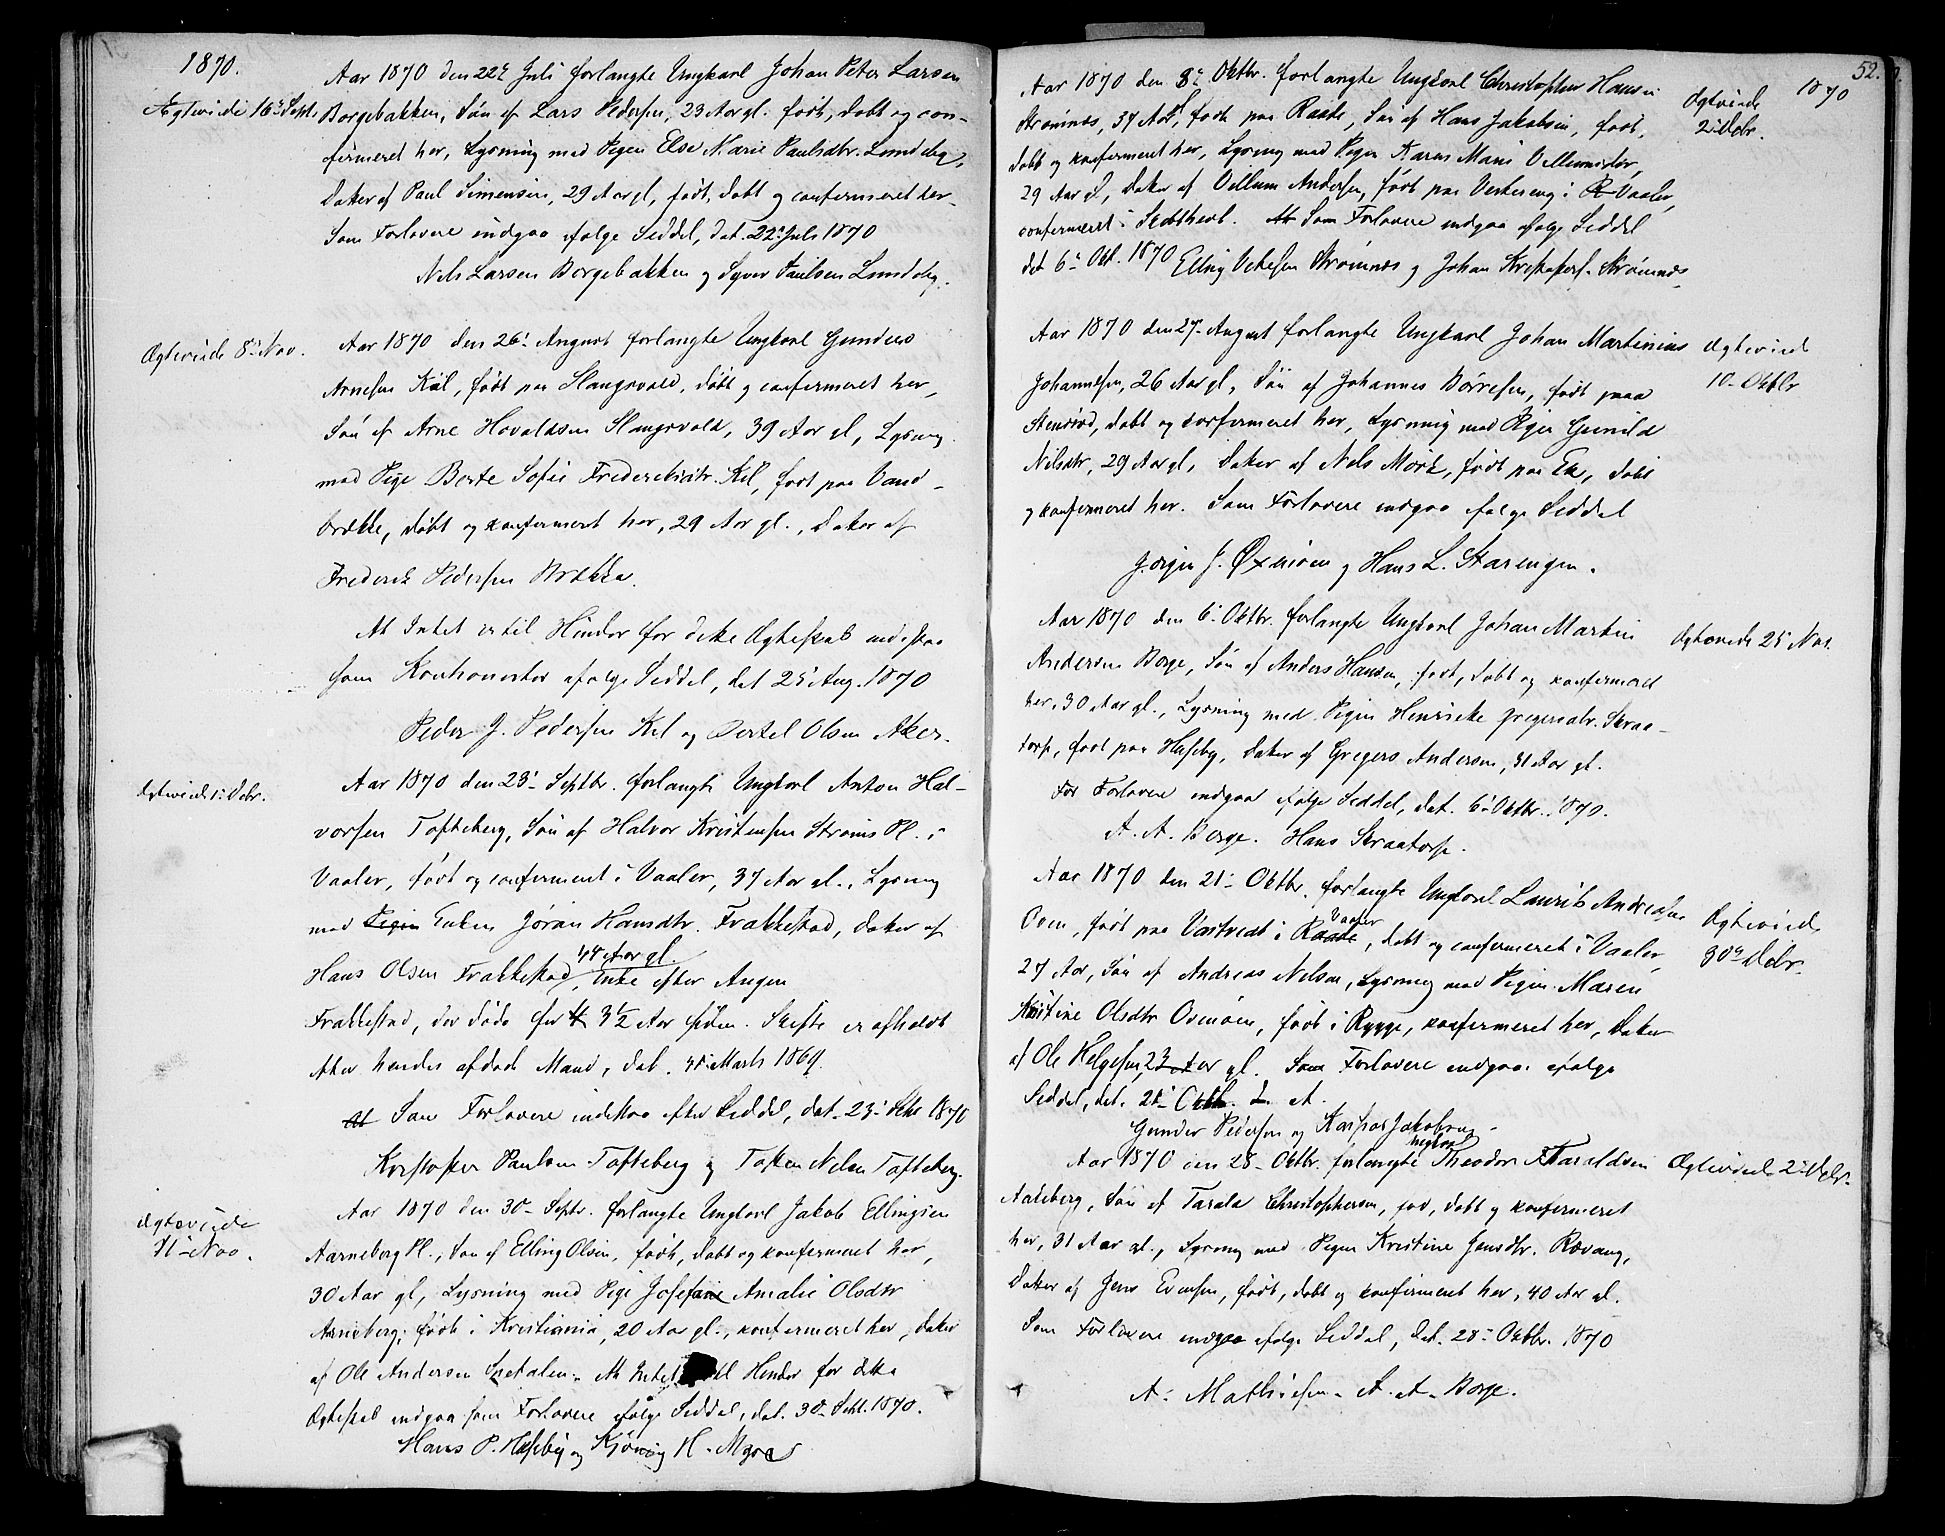 1870.
Aar 1870 den 22ẻ Juli forlangte Ungkarl Johan Peter Larsen
Ægteviede 16' Septr.
Borgebakken, Søn af Lars Pedersen, 23 Aar gl. født, døbt og con-
firmeret her, Lysning med Pigen Else Marie Paulsdtr. Lundeby,
Datter af Paul Simensen, 29 Aar gl, født, døbt og confirmeret her.
Som Forlovere indgaa ifølge Seddel, dat. 22' Juli 1870
Nils Larsen Borgebakken og Syver Paulsen Lundeby.
Ægteviede 8' Nov.
Aar 1870 den 26' August forlangte Ungkarl Gunders
Arnesen Kiil, født paa Slangsvold, døbt og confirmeret her,
Søn af Arne Hovaldsen Slangsvold, 39 Aar gl, Lysning
med Pige Berte Sofie Frederiksdtr. Kil, født paa Vand-
brække, døbt og konfirmeret her, 29 Aar gl., Datter af
Frederik Pedersen Brække.
At Intet er til Hinder for dette Ægteskab indestaa
som Kautionister ifølge Seddel, dat 25' Aug. 1870
Peder J. Pedersen Kil og Bertel Olsen Aker.
Ægteviede 1' Debr.
Aar 1870 den 23' Septbr. forlangte Ungkarl Anton Hal-
vorsen Tofteberg, Søn af Halvor Kristensen Strøms Pl. i
Vaaler, født og confirmeret i Vaaler, 37 Aar gl., Lysning
med Pigen Enken Jøran Hansdtr. Frakkestad, Datter af
44 Aar gl.
Hans Olsen Frakkestad, Enke efter Augen
Frakkestad, der døde for 4 3½ Aar siden. Skifte er afholdt
efter hendes afdøde Mand, dat. 4' Marts 1869.
At Som Forlovere indestaa efter Seddel, dat. 23' Sebr 1870
Kristoffer Paulsen Tofteberg og Tosten Nilsen Tofteberg.
Ægteviede
11' Nov.
Aar 1870 den 30' Septr. forlangte Ungkarl Jakob Ellingsen
Aarneberg Pl., Søn af Elling Olsen, født, døbt og konfirmeret her,
30 Aar gl, Lysning med Pige Josefine Amalie Olsdtr
Arneberg, født i Kristiania, 20 Aar gl., konfirmeret her, datter
af Ole Andersen Spetalen. At Intet er til Hinder for dette
Ægteskab indgaa som Forlovere ifølge Seddel, dat. 30' Sebt. 1870.
Hans P. Hæsby og H. Myra
52.
1870
Aar 1870 den 8' Oktbr. forlangte Ungkarl Christopher Hansen
Ægteviede
2' Debr.
Strømnæs, 34 Aar, født paa Raade, Søn af Hans Jakobsen, født,
døbt og konfirmeret her, Lysning med Pigen Karen Marie Villumsdtr,
29 Aar gl, Datter af Villum Andersen, født paa Verkereng i R Vaaler,
confirmeret i Skibthvedt. At Som Forlovere indgaa ifølge Seddel
dat 6' Okt. 1870 Elling Strømnæs og Johan Kristofers. Strømnæs.
Aar 1870 den 27' August forlangte Ungkarl Johan Martinius
Ægteviede
10' Oktbr
Johannesen, 26 Aar gl, Søn af Johannes Børresen, født paa
Stensrød, døbt og confirmeret her, Lysning med Pigen Gunild
Nilsdtr, 29 Aar gl, Datter af Nils Mørk, født paa Ek, døbt
og konfirmeret her. Som Forlovere indgaa ifølge Seddel
Jørgen J. Øxnøen og Hans L. Starengen.
Aar 1870 den 6' Oktbr. forlangte Ungkarl Johan Martin
Ægteviede 25' Nov.
Andersen Borge, Søn af Anders Hansen, født, døbt og konfirmeret
her, 30 Aar gl., Lysning med Pigen Henrikke Gregersdtr. Skraa-
torp, født paa Hæsby, Datter af Gregers Andersen, 31 Aar gl.
For Forlovere indgaa ifølge Seddel, dat. 6' Oktbr. 1870.
A. A. Borge. Hans Skraatorp.
Aar 1870 den 21' Oktbr. forlangte Ungkarl Laurits Andreasen
Ægteviede
30' Debr.
Vaaler
Oven, født paa Vastvedt i Raade, døbt og confirmeret i Vaaler,
27 Aar, Søn af Andreas Nilsen, Lysning med Pigen Maren
Kristine Olsdtr Ovenøen, født i Rygge, konfirmeret her, Datter
af Ole Helgesen, 23 Aar gl. Som Forlovere indgaa ifølge
Seddel, dat. 21' Oktb. d. A.
Gunder Pedersen og Kaspar Jakobsen.
Ungkarl
Aar 1870 den 28' Oktbr. forlangte Theodor Taraldsen
Ægteviede 2' Debr.
Aarsberg, Søn af Tarald Christophersen, fød, døbt og konfirmeret
her, 31 Aar gl., Lysning med Pigen Kristine Jensdtr. Rovang,
Datter af Jens Evensen, født, døbt og konfirmeret her, 40 Aar gl.
Som Forlovere indgaa ifølge Seddel, dat. 28' Oktbr. 1870
A. Mathisen. A. A. Borge.